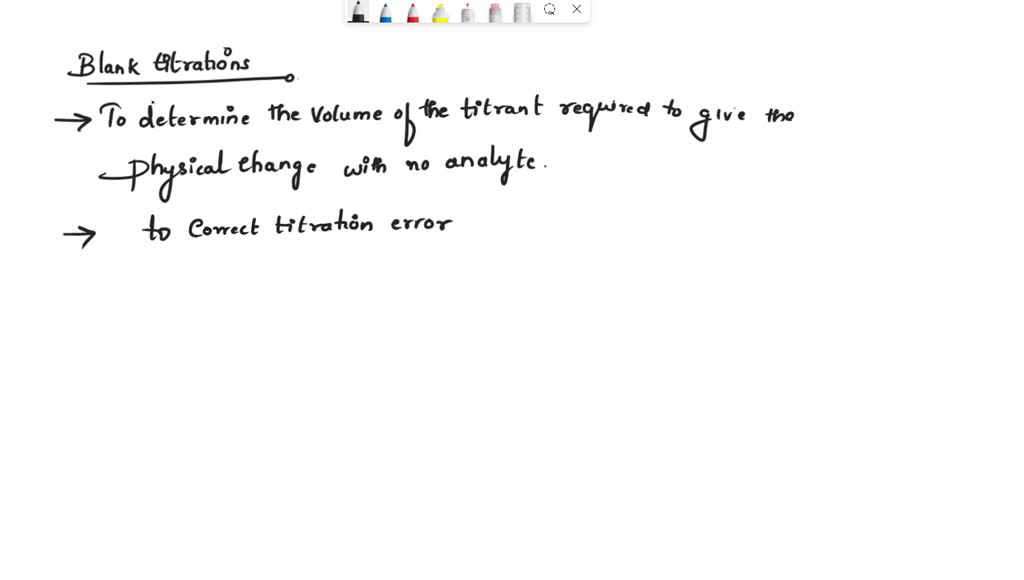 Blank titrations
→ To determine the volume of the titrant required to give the
physical change with no analyte.
→ to correct titration error